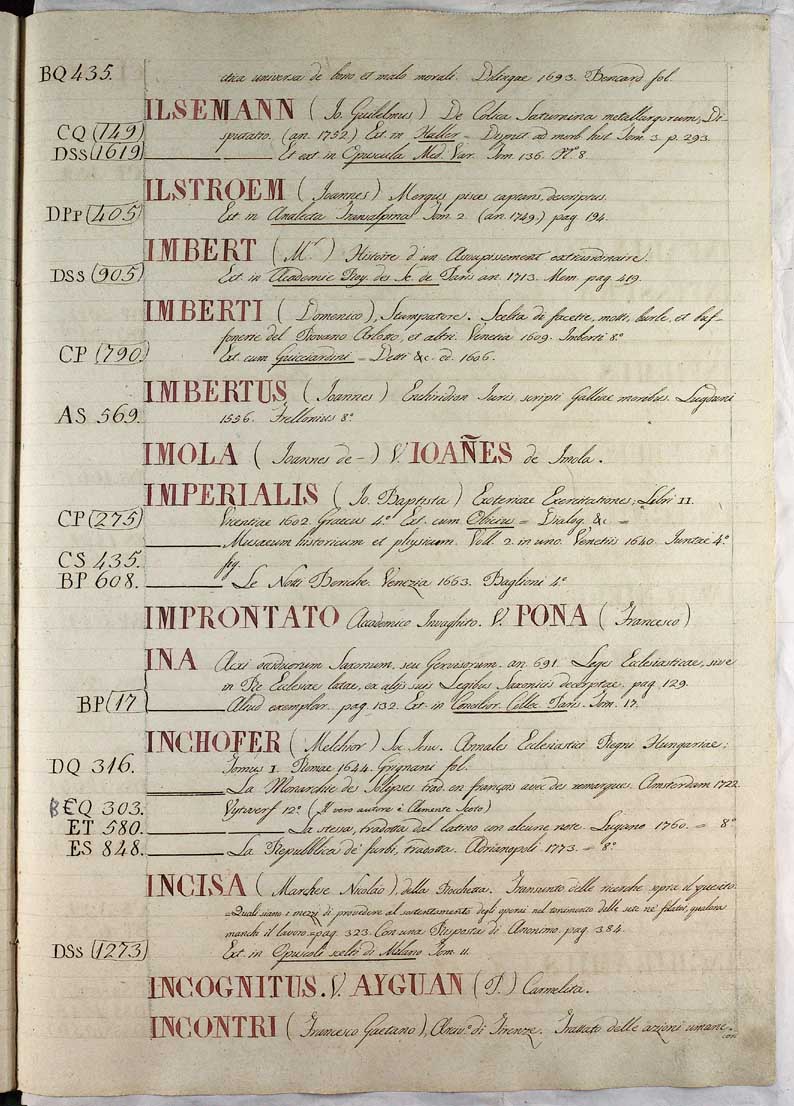 BQ 435. ctica universa de bono et malo morali. Dilingae 1693. Bencard fol.
ILSEMANN (Io. Guilelmus) De Colica Saturnina metallurgorum, Di-
CQ (149) sputatio. (an. 1752) Ext. in Haller = Disput. ad morb. hist. Tom. 3. p. 293.
DSs (1619) Et ext. in Opuscula Med. Var. Tom. 136. N.º 8.
ILSTROEM (Joannes) Mergus pisces captans, descriptus.
DPp (405) Ext. in Analecta Transalpina Tom. 2. (an. 1749.) pag. 194.
IMBERT (M.r) Histoire d'un Assoupissement extraordinaire.
DSs (905) Ext. in Academie Roy. des Sc. de Paris an. 1713. Mem. pag. 419.
IMBERTI (Domenico), Stampatore. Scelta di facetie, motti, burle, et buf-
fonerie del Piovano Arlotto, et altri. Venetia 1609. Imberti 8.º
CP (790) Ext. cum Guicciardini = Detti &c. ed. 1606.
IMBERTUS (Joannes) Enchiridion Iuris scripti Galliae moribus. Lugduni
AS 569. 1556. Frellonius 8.º
IMOLA (Joannes de-) V. IOAÑES de Imola.
IMPERIALIS (Io. Baptista) Exotericae Exercitationes; Libri II.
CP (275) Vicentiae 1602. Graecus 4.º Ext. cum Obicius = Dialog. &c =
Musaeum historicum et physicum. Voll. 2. in uno. Venetiis 1640. Juntae 4.º
CS 435. fig.
BP 608. Le Notti Beriche. Venezia 1663. Baglioni 4.º
IMPRONTATO Academico Invaghito. V. PONA (Francesco)
INA Rexi occiduorum Saxonum, seu Gevisorum. an. 691. Leges Ecclesiasticae, sive
in Re Ecclesiae latae, ex alijs suis Legibus Saxonicis decerptae. pag. 129.
BP (17 Aliud exemplar. pag. 132. Ext. in Concilior. Collec. Paris. Tom. 17.
INCHOFER (Melchior) Soc. Iesu. Annales Ecclesiastici Regni Hungariae;
DQ 316. Tomus I. Romae 1644. Grignani fol.
La Monarchie des Solipses trad. en françois avec des remarques. Amsterdam 1722.
BEQ 303. Uytwerf 12.º (Il vero autore è Clemente Scoto)
ET 580. La stessa, tradotta dal latino con alcune note. Lugano 1760. = 8.º
ES 848. La Repubblica de' furbi, tradotta. Adrianopoli 1773. = 8.º
INCISA (Marchese Nicolao), della Rocchetta. Transunto delle ricerche sopra il quesito
= Quali siano i mezzi di provedere al sostentamento degli operai nel torcimento delle sete ne' filatoi, qualora
manchi il lavoro = pag. 323. Con una Risposta di Anonimo. pag. 384.
DSs (1273) Ext. in Opuscoli scelti di Milano Tom. 11.
INCOGNITUS. V. AYGUAN (P.) Carmelita.
INCONTRI (Francesco Gaetano), Arciv.º di Firenze. Trattato delle azioni umane.
con